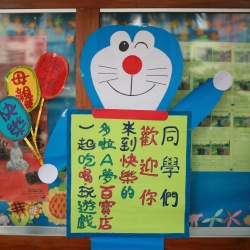 同學們
歡迎你
來到快樂的
多啦A夢百寶店
一起吃喝玩遊戲
母親
快樂